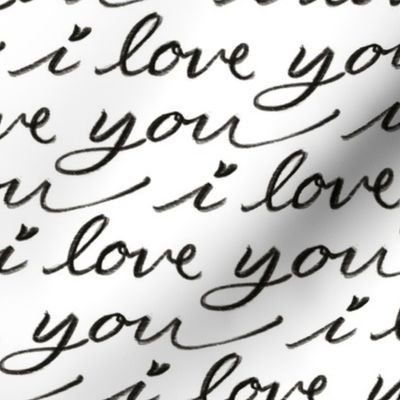 i love you
ve you i
ou i love
i love you
you i l
i love y